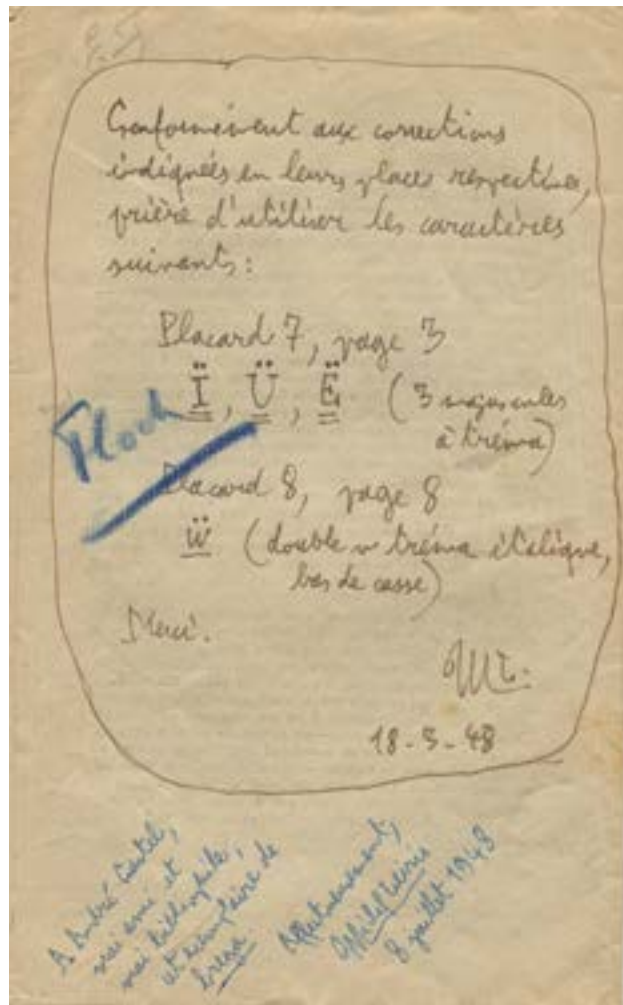 Conformément aux corrections
indiquées en leurs places respectives,
prière d'utiliser les caractères
suivants :
Placard 7, page 3
Ï, Ü, Ë (3 majuscules
à tréma)
Floch
Placard 8, page 8
ẅ (double v tréma italique,
bas de casse)
Merci.
ML.
18-3-48
A André Castel,
vrai ami et
vrai bibliophile,
cet exemplaire de
Affectueusement,
8 juillet 1948